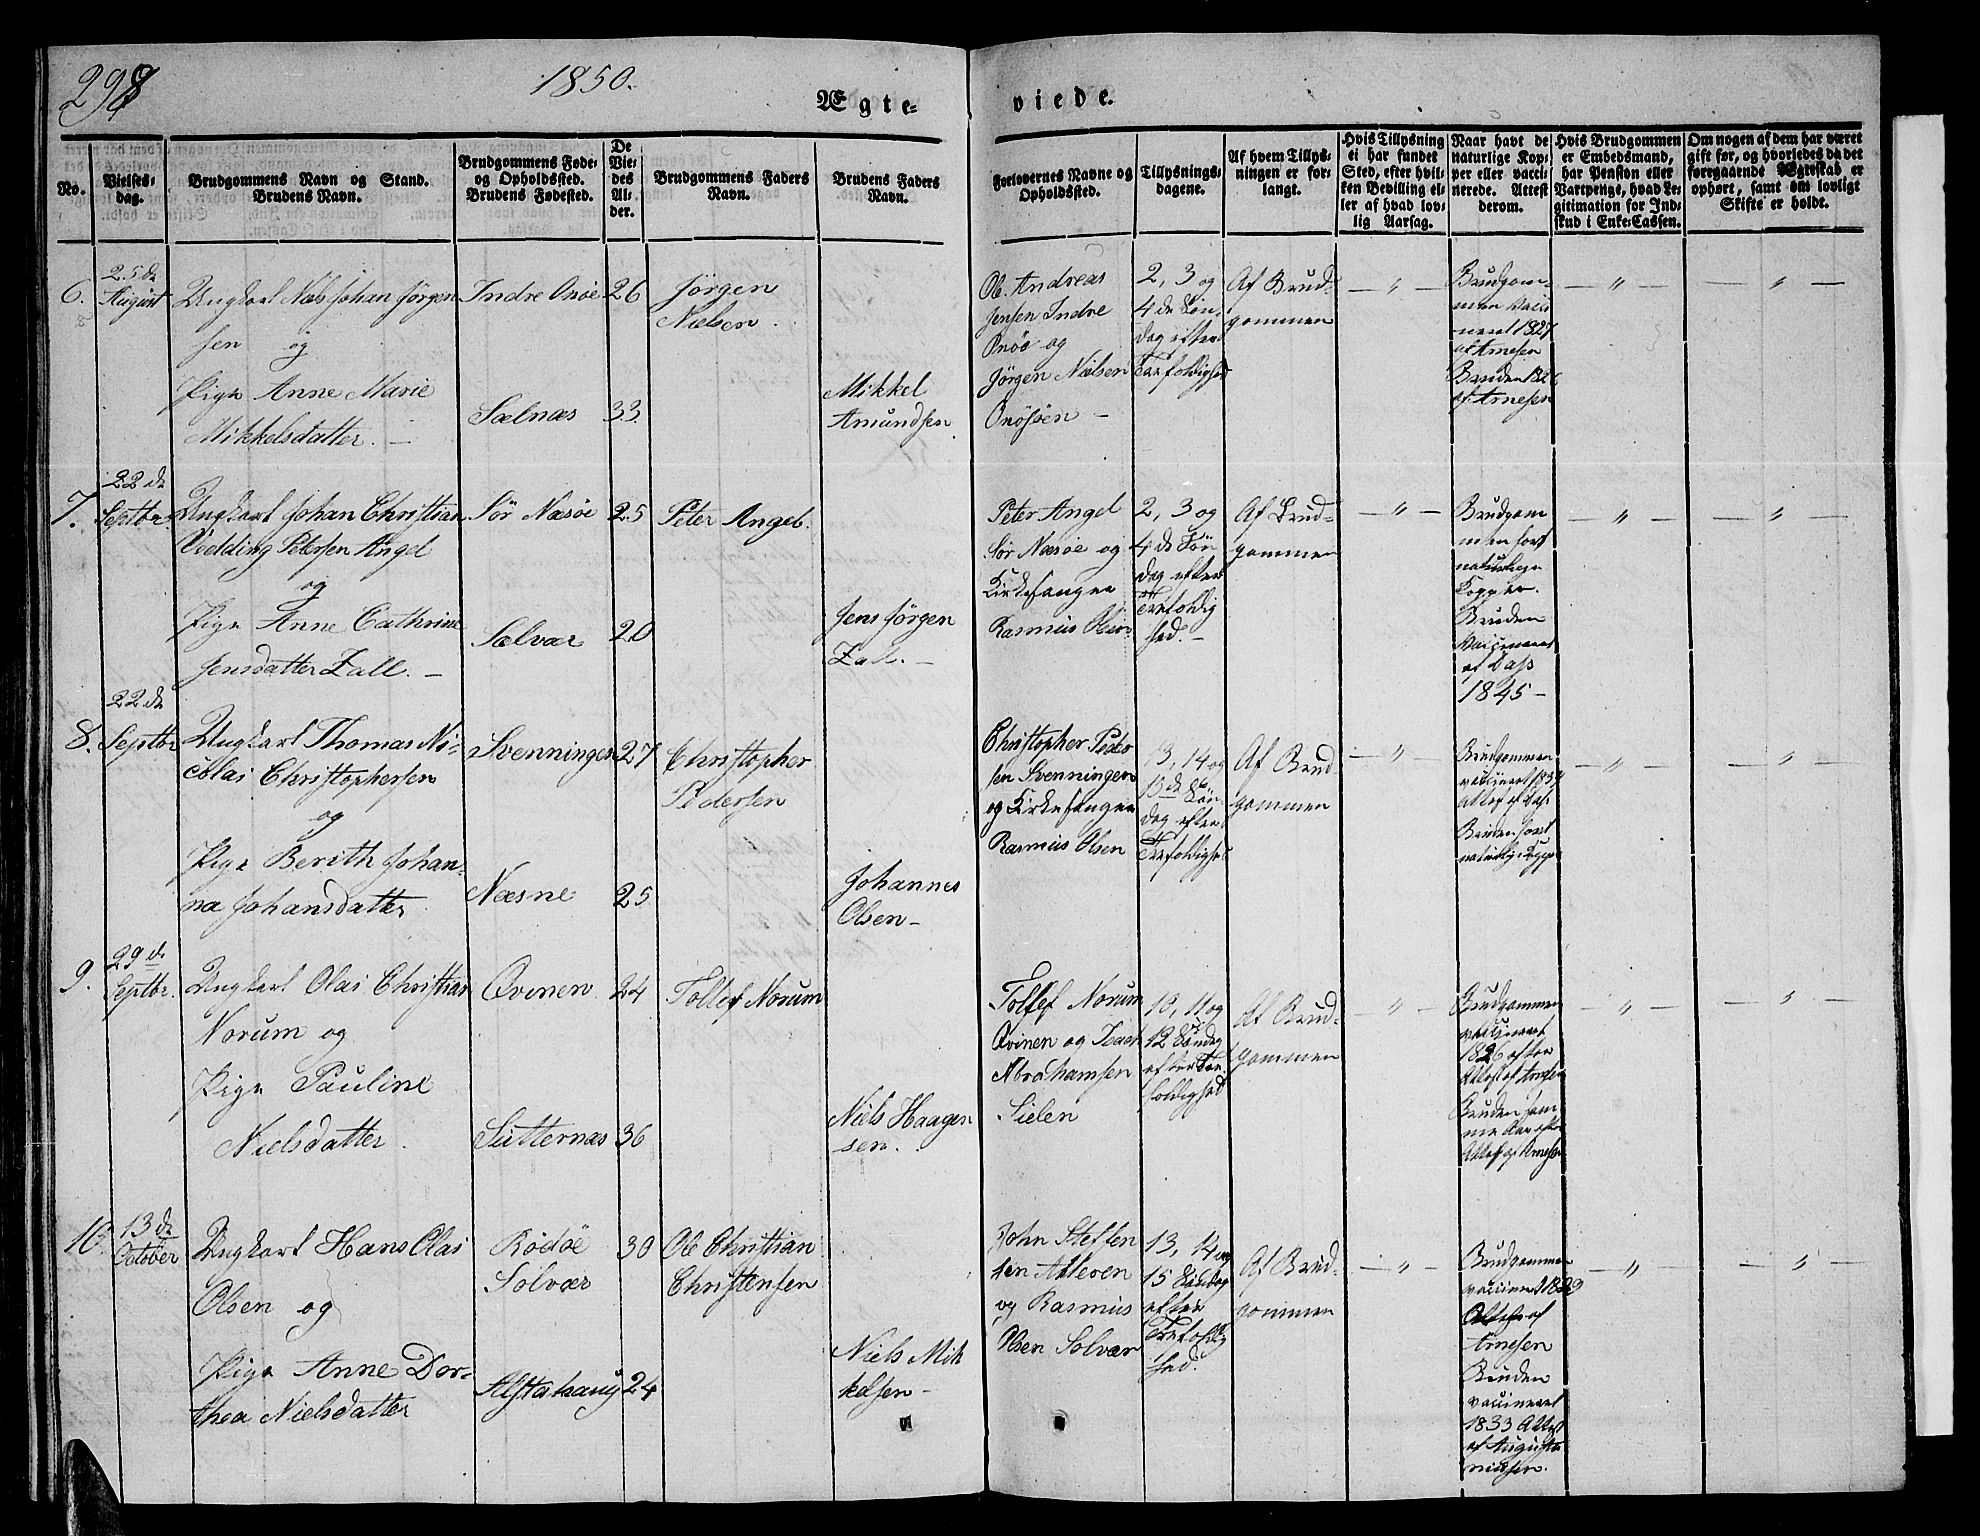 298
1850.
Ægte-
viede.
No.
Vielses-
dag.
Brudgommens Navn og Stand.
Brudens Navn.
Brudgommens Føde-
og Opholdssted.
Brudens Fødested.
De
Vie-
des
Al-
der.
Brudgommens Faders
Navn.
Brudens Faders
Navn.
Forlovernes Navne og
Opholdssted.
Tillysnings-
dagene.
Af hvem Tillys-
ningen er for-
langt.
Hvis Tillysning
ei har fundet
Sted, efter hvil-
ken Bevilling el-
ler af hvad lov-
lig Aarsag.
Naar havt de
naturlige Kop-
per eller vacci-
nerede. Attest
derom.
Hvis Brudgommen
er Embedsmand,
har Pension eller
Vartpenge, hvad Le-
gitimation for Ind-
skud i Enke-Cassen.
Om nogen af dem har været
gift før, og hvorledes da det
foregaaende Ægteskab er
ophørt, samt om lovligt
Skifte er holdt.
6.
25de
August
Ungkarl Niels Johan Jørgen
sen og
Pige Anne Marie
Mikkelsdatter.
Indre Onøe
Sælnæs
26
33
Jørgen
Nielsen
Mikkel
Amundsen
Ole Andreas
Jensen Indre
Onøe og
Jørgen Nielsen
Onøsøen
2, 3 og
4de Søn-
dag efter
Trefoldighed
Af Brud-
gommen
"
Brudgom-
men Vacci
neret 1827
af Arnesen
Bruden 1826
af Arnesen
"
"
7.
22de
Septbr.
Ungkarl Johan Christian
Vedding Petersen Angel
og
Pige Anne Cathrine
Jensdatter Zall.
Sør Næsøe
Sælvær
25
20
Peter Angel.
Jens Jørgen
Zall.
Peter Angel
Sør Næsøe og
Kirkesanger
Rasmus Olsen
2, 3 og
4de Søn
dag efter
Trefoldig
hed.
Af Brud-
gommen
"
Brudgom
men havt
naturlige
Kopper.
Bruden
Vaccineret
af Dass
1845
"
"
8.
22de
Septbr
Ungkarl Thomas Ni-
colai Christophersen
og
Pige Berith Johan-
na Johansdatter
Svenningen
Næsne
27
25
Christopher
Pedersen
Johannes
Olsen
Christopher Peder
sen Svenningen
og Kirkesanger
Rasmus Olsen
13, 14 og
15de Søn-
dag efter
Trefoldighed
Af Brud
gommen
"
Brudgommen
vaccineret
Bruden havt
naturlig Kopper
"
"
9.
29de
Septbr.
Ungkarl Olai Christian
Norum og
Pige Pauline
Nielsdatter
Qvinen
Sutternæs
24
36
Tollef Norum
Niels Haagen
sen.
Tollef Norum
Qvinen og Isach
Abrahamsen
Sielen
10, 11 og
12 Søndag
efter Tre
foldighed
Af Brud-
gommen
"
Brudgommen
vaccineret
1826 efter
Attest af Arnesen
Bruden sam
me Aar efter
Attest af Arnesen
"
"
10.
13de
October
Ungkarl Hans Olai
Olsen og
Pige Anne Dor-
thea Nielsdatter
Rødøe
Solvær
Alstahaug
30
24
Ole Christian
Christensen
Niels Mik
kelsen
John Steffen
sen Alteren
og Rasmus
Olsen Solvær
13, 14 og
15 Søndag
efter
Trefoldig
hed.
Af Brud-
gommen
"
Brudgommen
vaccineret 1829
Attest af
Arnesen
Bruden
vaccineret
1833 Attest
af Augusti
nusen.
"
"